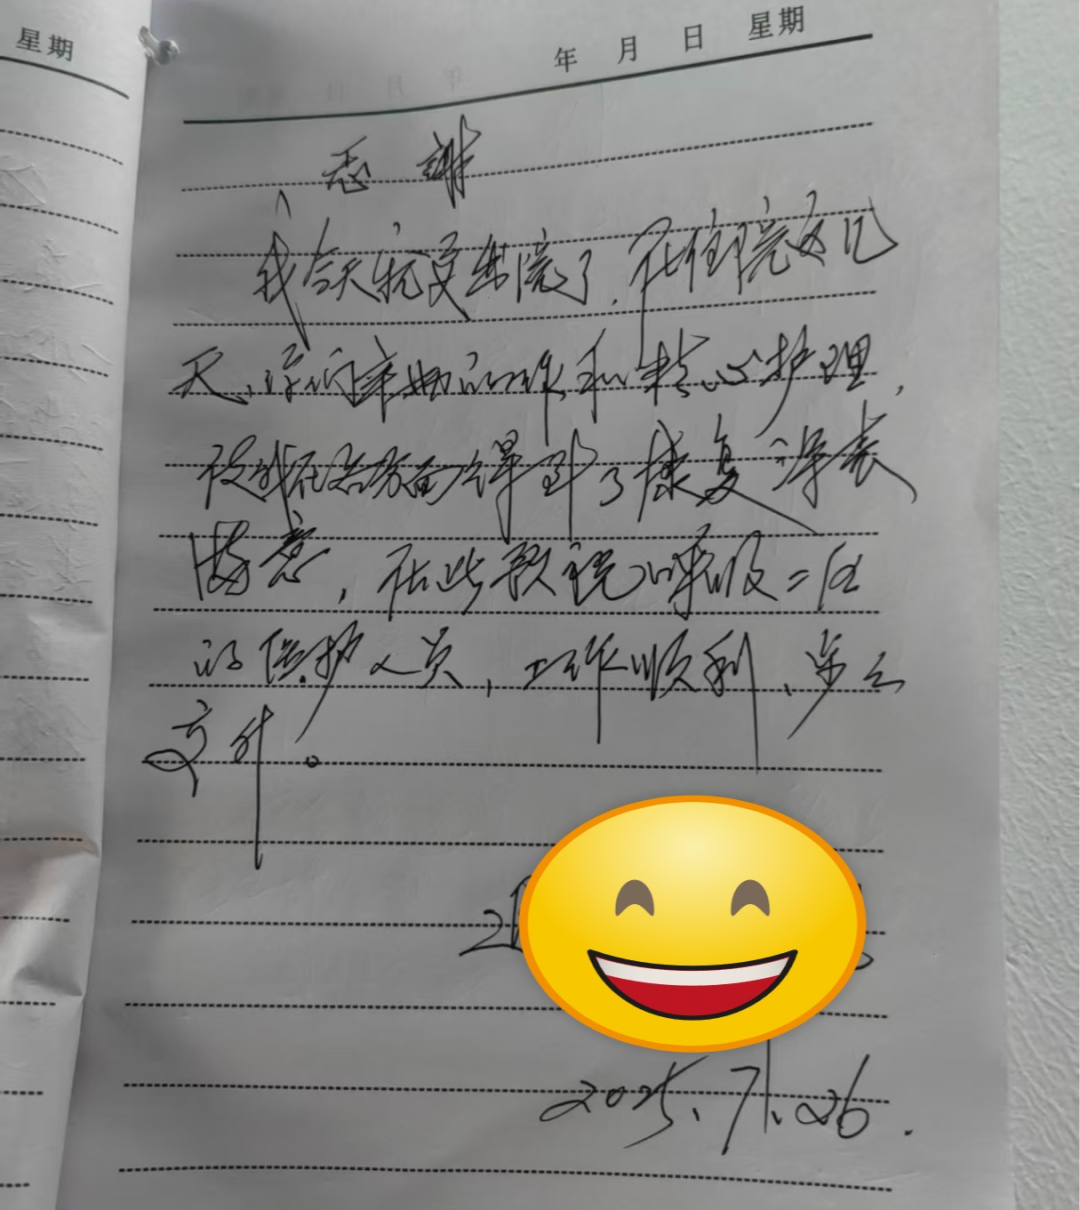 星期
年 月 日 星期
感谢
我今天康复出院了，在住院这几
天，你们辛勤的工作和精心护理，
使我在各方面得到了康复，深表
满意，在此预祝呼吸二区
的医护人员，工作顺利、步步
高升。
2025.7.26.